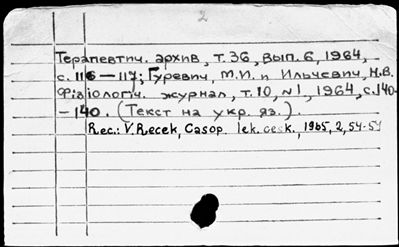 2
Терапевтич. архив, т. 36, вып. 6, 1964, -
с. 116 — 117; Гуревич, М.И. и Ильчевич, Н.В.
Фізіологіч. журнал, т. 10, №1, 1964, с. 140-
- 140. (Текст на укр. яз.).
Rec.: V. Recek, Casop. lek. cesk., 1965, 2, 54-54